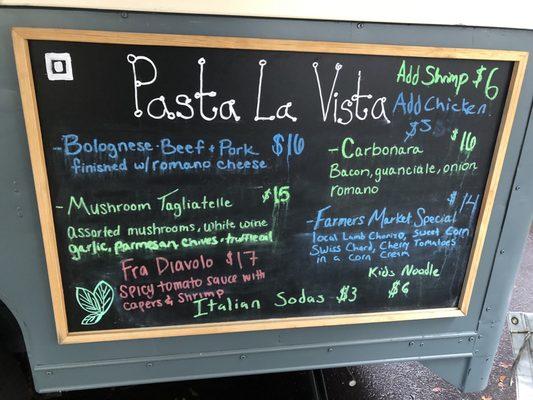 Pasta La Vista
Add Shrimp $6
Add Chicken
$5
-Bolognese-Beef & Pork $16
finished w/romano cheese
-Mushroom Tagliatelle $15
assorted mushrooms, white wine
garlic, parmesan, chives & truffle oil
Fra Diavolo $17
Spicy tomato sauce with
capers & shrimp
-Carbonara $16
Bacon, guanciale, onion
romano
$14
-Farmers Market Special
local Lamb Chorizo, sweet corn
Swiss Chard, Cherry Tomatoes
in a corn cream
Kids Noodle
$6
Italian Sodas $3